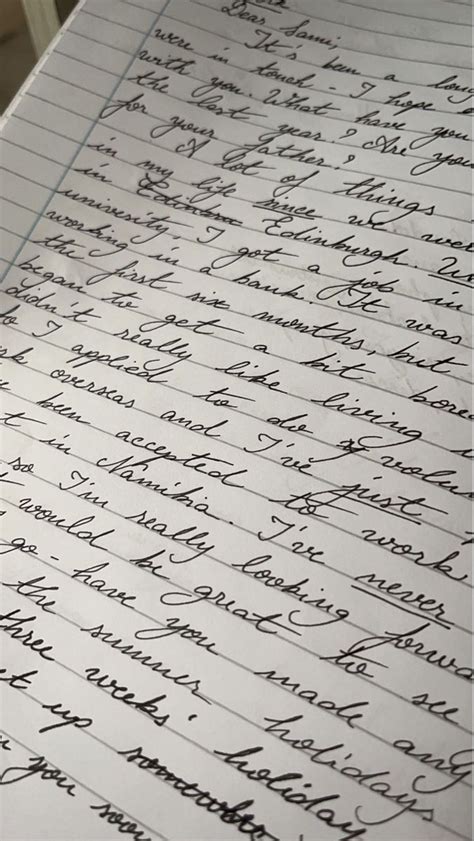 Dear Sami,
It's been a long
were in touch - I hope
with you. What have you
the last year? Are you
for your father?
A lot of things
in my life since we
in Edinburgh.
university, I got a job in
working in a bank. It was
the first six months, but
began to get a bit
didn't really like living
I applied to do
overseas and I've just
been accepted to work
in Namibia. I've never
so I'm really looking
would be great to see
go - have you made any
the summer holidays
three weeks' holiday
up
you soon